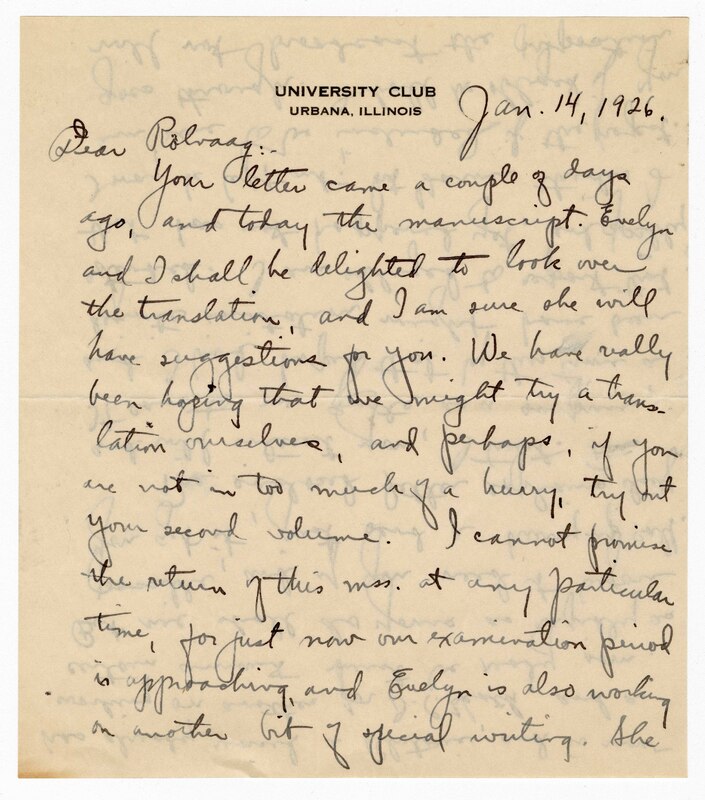 UNIVERSITY CLUB
URBANA, ILLINOIS
Jan. 14, 1926.
Dear Rölvaag:-
Your letter came a couple of days
ago, and today the manuscript. Evelyn
and I shall be delighted to look over
the translation, and I am sure she will
have suggestions for you. We have really
been hoping that we might try a trans-
lation ourselves, and perhaps, if you
are not in too much of a hurry, try out
your second volume. I cannot promise
the return of this mss. at any particular
time, for just now our examination period
is approaching, and Evelyn is also working
on another bit of special writing. She